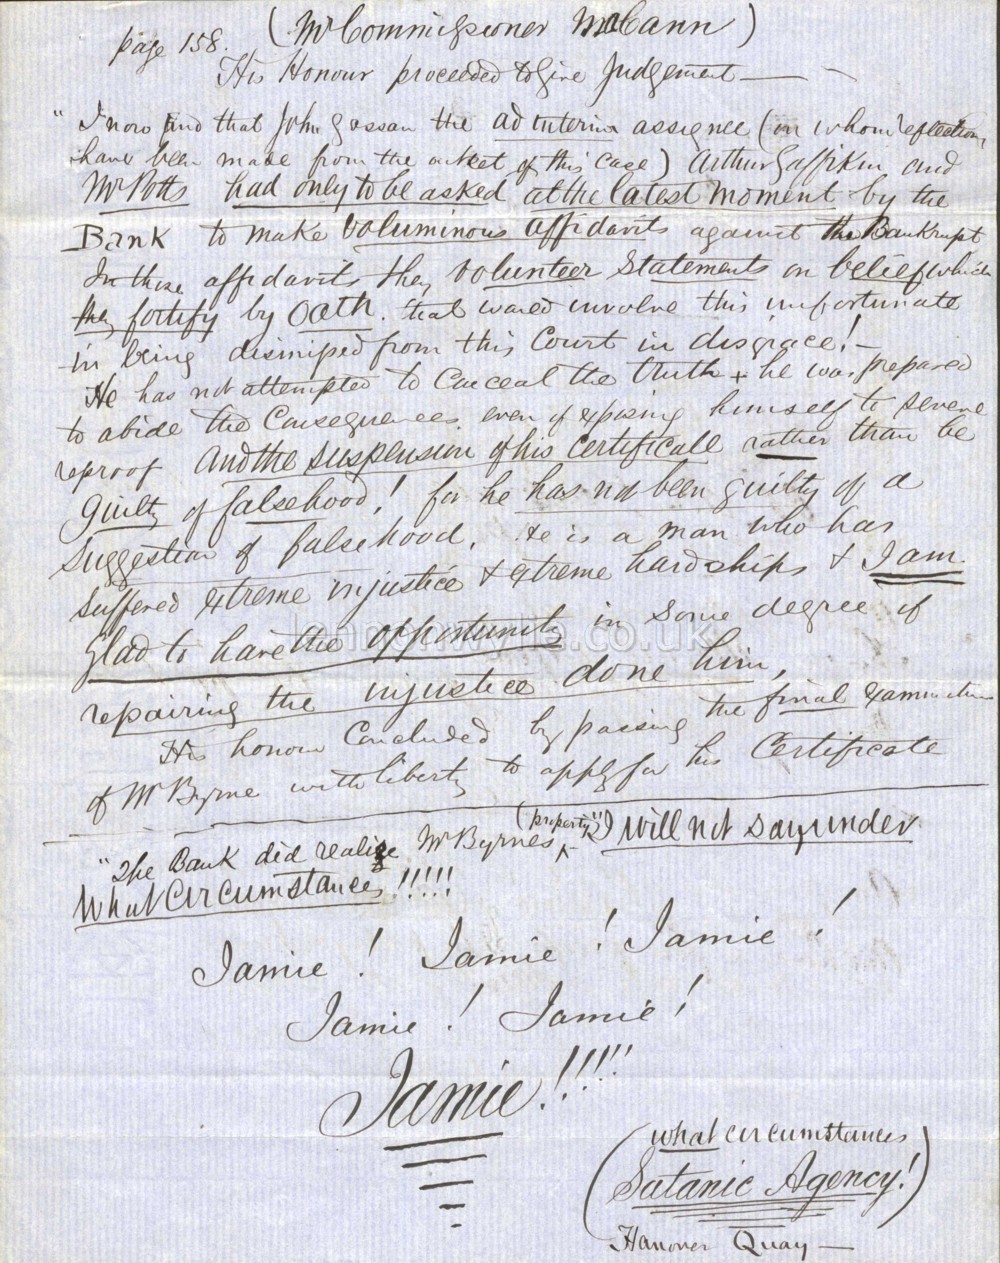 page 158. (Mr Commissioner McCann)
His Honour proceeded to give Judgement —
"I now find that John Gessan the ad interim assignee (on whom reflections
have been made from the outset of this case) Arthur Gaffikin and
Mr Potts had only to be asked at the latest moment by the
Bank to make voluminous affidavits against the Bankrupt
In these affidavits they volunteer statements on belief which
they fortify by oath. that would involve this unfortunate
in being dismissed from this Court in disgrace! —
He has not attempted to conceal the truth & he was prepared
to abide the consequences even if exposing himself to severe
reproof and the suspension of his certificate rather than be
guilty of falsehood! for he has not been guilty of a
suggestion of falsehood. He is a man who has
suffered extreme injustice & extreme hardships & I am
glad to have the opportunity in some degree of
repairing the injustice done him,
His honour concluded by passing the final examination
of Mr Byrne with liberty to apply for his Certificate
"The Bank did realize Mr Byrnes (property") will not say under
what circumstances!!!!!
Jamie! Jamie! Jamie!
Jamie! Jamie!
Jamie!!!!!
(what circumstances
Satanic Agency!)
Hanover Quay —
lennonwylie.co.uk